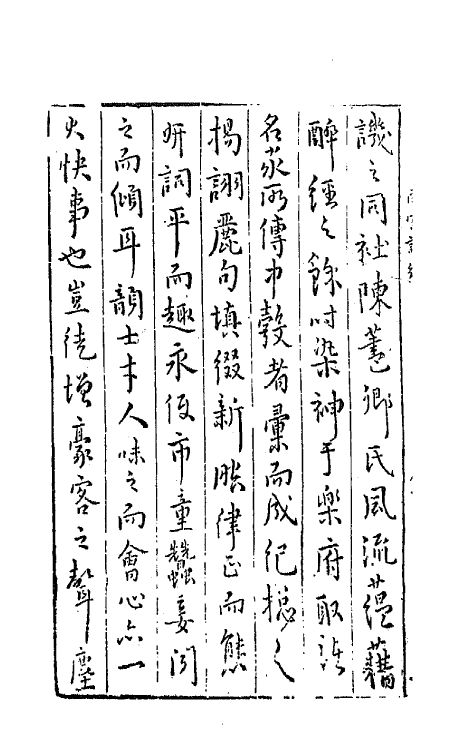 譏之同社陳藎卿氏風流蘊藉
醉經之餘時染神于樂府取諸
名家所傳中彀者彙而成紀摠之
揚詡麗句填綴新賬律正而態
妍詞平而趣永俾市童蠶妾聞
之而傾耳韻士才人味之而會心亦一
大快事也豈徒增豪客之聲塵